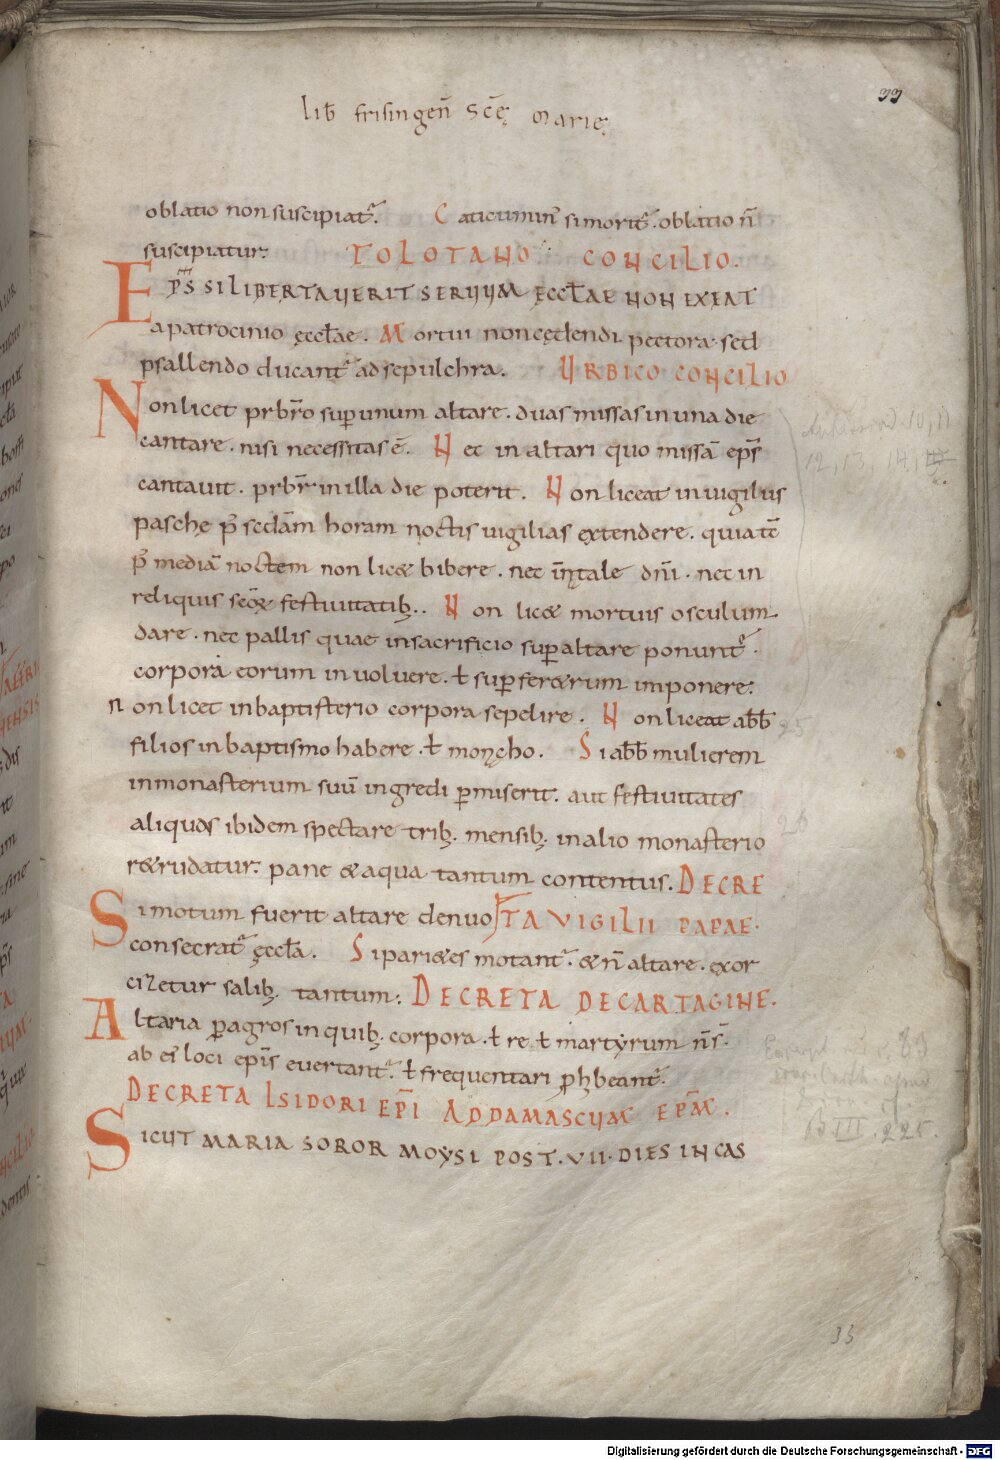 lib̄ frisingen̄ Sc̄ę Marię
99
oblatio non suscipiat᷑. Caticumin᷑ si morit᷑. oblatio n̄
suscipiatur. TOLOTANO CONCILIO.
EP̄S SI LIBERTAUERIT SERUUM ĘCCL̄AE NON EXEAT
a patrocinio ęccl̄ae. Mortui non cędendi pectora. sed
psallendo ducant᷑ ad sepulchra. URBICO CONCILIO
Non licet prb̄ro super unum altare. duas missas in una die
cantare. nisi necessitas ē. Nec in altari quo missā ep̄s
cantauit. prb̄r in illa die poterit. Non liceat in uigiliis
paschę p᷑ secdām horam noctis uigilias extendere. quia tē
p᷑ mediā noctem non licet bibere. nec in natale dn̄i. nec in
reliquis festiuitatib;. Non licet mortuis osculum
dare. nec pallis quae in sacrificio super altare ponunt᷑.
corpora eorum inuoluere. ł super feretrum imponere.
non licet in baptisterio corpora sepelire. Non liceat abb̄
filios in baptismo habere. ł monącho. Si abb̄ mulierem
in monasterium suū ingredi permiserit. aut festiuitates
aliquas ibidem spectare trib; mensib; in alio monasterio
retrudatur. pane & aqua tantum contentus. DECRE
Si motum fuerit altare denuo TA VIGILII PAPAE.
consecrat᷑ ęccl̄a. Si parietes motant᷑. & n̄ altare. exor
cizetur salib; tantum. DECRETA DE CARTAGINE.
Altaria per agros in quib; corpora. ł re ł martyrum n̄ s̄.
ab ei᷒ loci ep̄is euertant᷑. ł frequentari phbeant᷑.
DECRETA ISIDORI EP̄I AD DAMASCUM EP̄M.
SICUT MARIA SOROR MOYSI POST. VII. DIES IN CAS
25
26
33
Digitalisierung gefördert durch die Deutsche Forschungsgemeinschaft - DFG